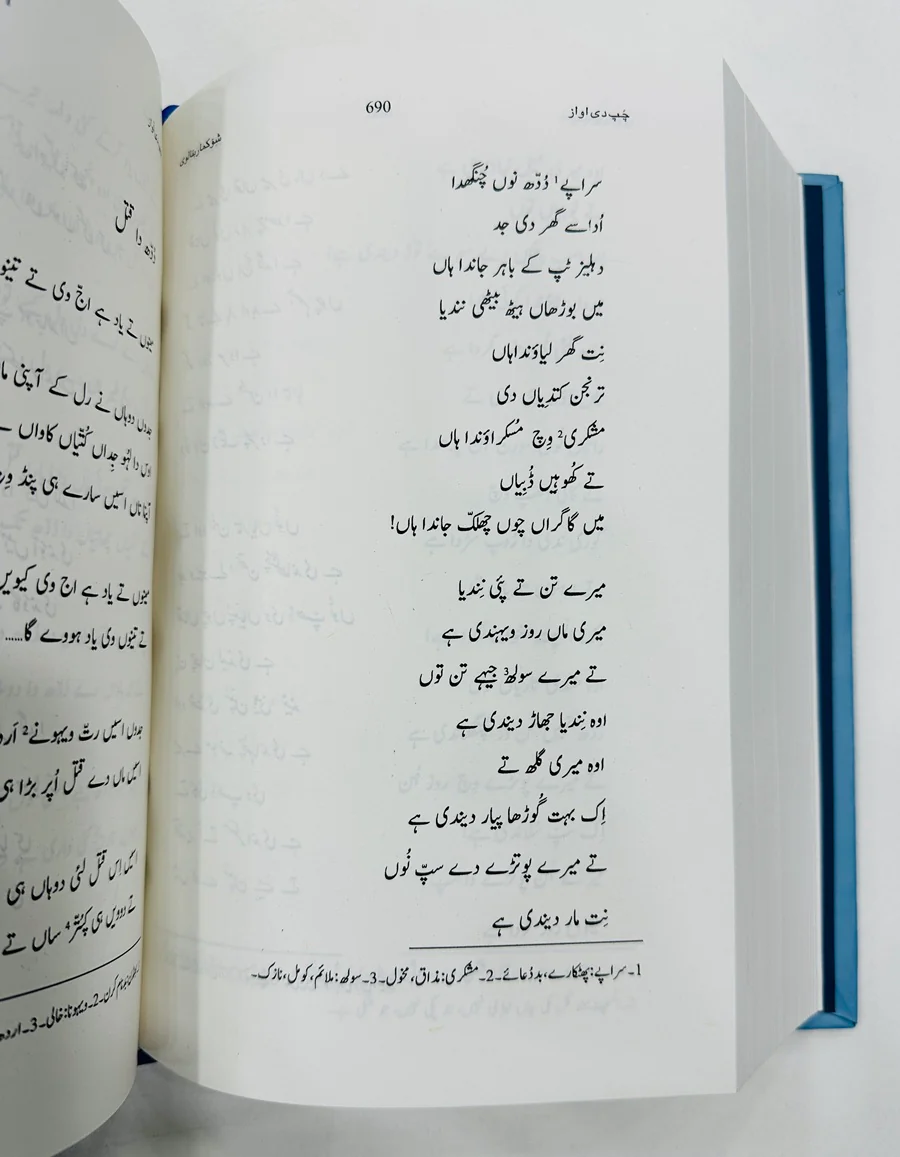 چُپ دی اواز
690
سراپے¹ دُدّھ نوں چُنگھدا
اُداسے گھر دی جد
دہلیز ٹپ کے باہر جاندا ہاں
میں بوڑھاں ہیٹھ بیٹھی نندیا
نِت گھر لیاؤنداہاں
ترنجن کتدِیاں دی
مشکری² وِچ مُسکراؤندا ہاں
تے کھُوہیں ڈُبِیاں
میں گاگراں چوں چھلکّ جاندا ہاں!
میرے تن تے پئی نِندیا
میری ماں روز ویہندی ہے
تے میرے سولھ³ جیہے تن توں
اوہ نِندیا جھاڑ دیندی ہے
اوہ میری گلھ تے
اِک بہت گُوڑھا پیار دیندی ہے
تے میرے پوتڑے دے سپّ نُوں
نِت مار دیندی ہے
1۔سراپے: پھٹکارے، بددُعائے۔2۔مشکری: مذاق، مخول۔3۔سولھ: ملائم، کومل، نازک۔
شوکمار بٹالوی
دُدّھ دا قتل
مینوں تے یاد ہے اجّ وی تے تینو
جدوں دوہاں نے رل کے آپنی ما
دا لہُو جِداں کُتّیاں کاواں
ناں اسیں سارے ہی پنڈ
مینوں تے یاد ہے اج وی کیویں
تے تینوں وی یاد ہووے گا......
جدوں اسیں رتّ ویہونے²
ماں دے قتل اُپر بڑا ہی
اِس قتل لئی دوہاں ہی
تے دوویں ہی کپُتّر⁴ ساں تے
2۔ویہونا: خالی۔3۔